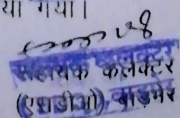 या गया।
सहायक कलेक्टर
(एसडीओ) बाड़मेर